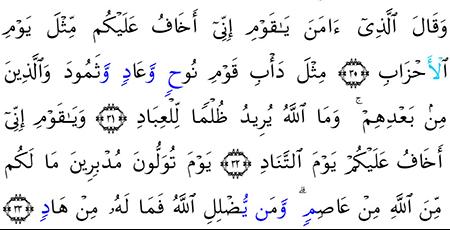 وَقَالَ ٱلَّذِىٓ ءَامَنَ يَـٰقَوْمِ إِنِّىٓ أَخَافُ عَلَيْكُم مِّثْلَ يَوْمِ
ٱلْأَحْزَابِ ﴿٣٠﴾ مِثْلَ دَأْبِ قَوْمِ نُوحٍ وَعَادٍ وَثَمُودَ وَٱلَّذِينَ
مِنۢ بَعْدِهِمْ ۚ وَمَا ٱللَّهُ يُرِيدُ ظُلْمًا لِّلْعِبَادِ ﴿٣١﴾ وَيَـٰقَوْمِ إِنِّىٓ
أَخَافُ عَلَيْكُمْ يَوْمَ ٱلتَّنَادِ ﴿٣٢﴾ يَوْمَ تُوَلُّونَ مُدْبِرِينَ مَا لَكُم
مِّنَ ٱللَّهِ مِنْ عَاصِمٍ ۗ وَمَن يُضْلِلِ ٱللَّهُ فَمَا لَهُۥ مِنْ هَادٍ ﴿٣٣﴾